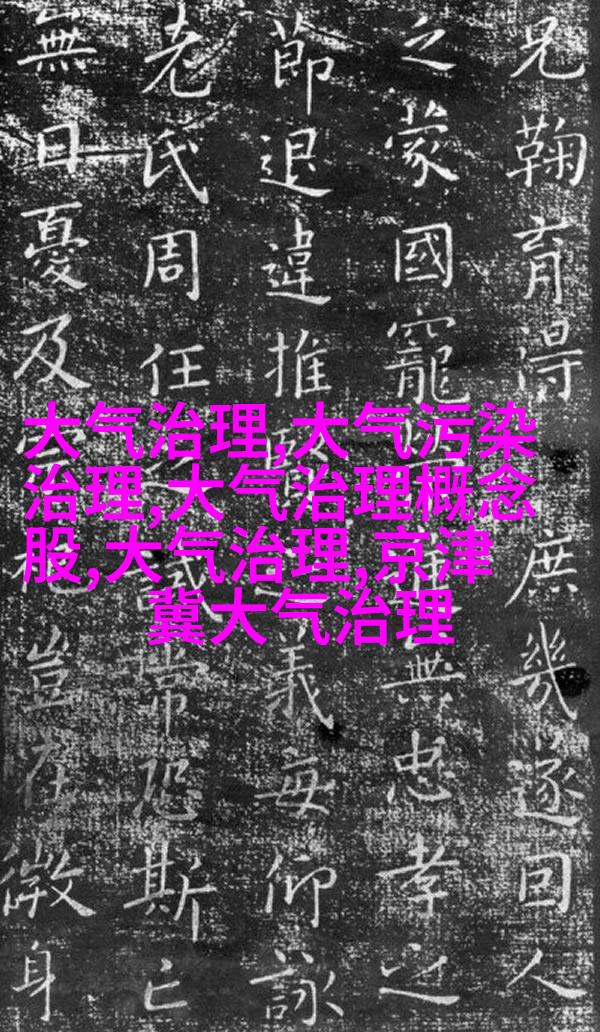 兄鞠育得庶幾遂回人
之蒙國寵無忠孝之
節退違推義每仰詠
老氏周任常恐斯亡
無日憂及豈在微身
大气治理,大气污染
治理,大气治理概念
股,大气治理,京津
冀大气治理